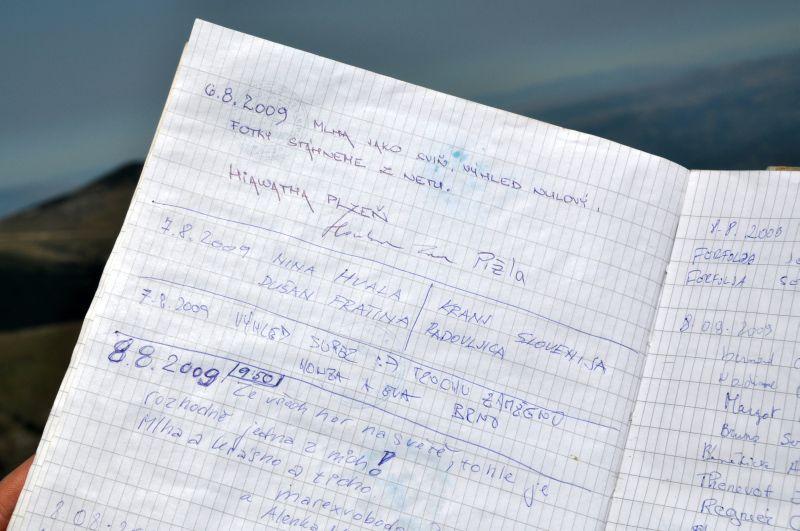 6.8.2009 MLHA JAKO SVIŇ, VÝHLED NULOVÝ,
FOTKY STÁHNEME Z NETU.
HIAWATHA PLZEŇ
Pížla
7.8.2009 NINA HVALA KRANJ SLOVENIJA
DUŠAN FRATINA RADOVLJICA
7.8.2009 VÝHLED SUPEZ :-) TROCHU ZAMŽENO
HONZA A EVA BRNO
8.8.2009 9:50 Ze všech hor na světě, tohle je
rozhodně jedna z nich!
Mlha a krásno a ticho
marexvoboda
a Alenka
8.08.20
8.8.2009
FORFOLJA
FORFOLJA
8.08.2009
Margot
Bruno
Bénédicte
Thenevot
Regnier